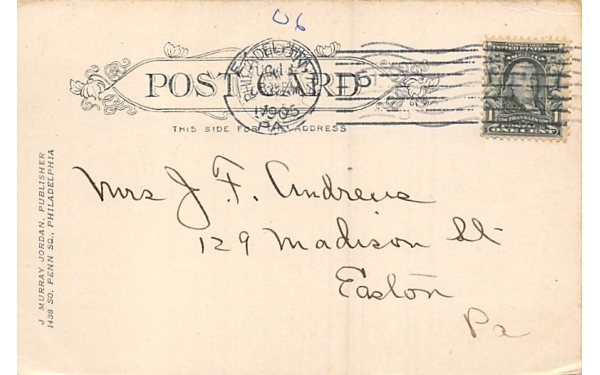 06
POST CARD
PHILADELPHIA
1905
PA.
5
UNITED STATES OF AMERICA
FRANKLIN
1 1
ONE CENT
THIS SIDE FOR ADDRESS
J. MURRAY JORDAN, PUBLISHER
1438 SO. PENN SQ., PHILADELPHIA
Mrs J. F. Andrews
129 Madison St.
Easton
Pa